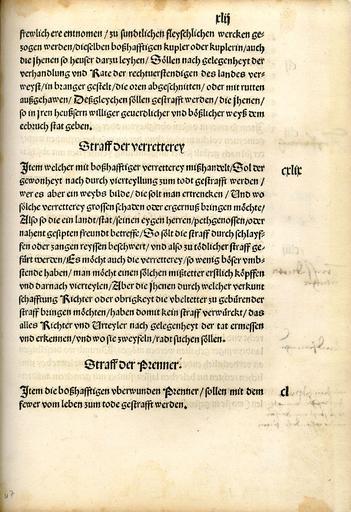 xlij
frewlich ere entnomen / zu sundtlichen fleyschlichen wercken ge-
zogen werden / dieselben boßhafftigen kupler oder kuplerin / auch
die jhenen so heuser darzu leyhen / Söllen nach gelegenheyt der
verhandlung vnd Rate der rechtuerstendigen des landes ver-
weyst / in branger gestelt / die oren abgeschnitten / oder mit rutten
außgehawen / Deßgleychen söllen gestrafft werden / die jhenen /
so in jren heußern williger geuerdlicher vnd bößlicher weyß dem
eebruch stat geben.
Straff der verretterey
Item welcher mit boßhafftiger verretterey mißhandelt / Sol der
cxlix
gewonheyt nach durch vierteyllung zum todt gestrafft werden /
wer es aber ein weybs bilde / die solt man ertrencken / Und wo
sölche verretterey grossen schaden oder ergernuß bringen möchte /
Also so die ein landt / stat / seinen eygen herren / pethgenossen / oder
nahent gesipten freundt betreffe / So sölt die straff durch schlayf-
fen oder zangen reyssen beschwert / vnd also zu tödlicher straff ge-
fürt werden / Es möcht auch die verretterey / so wenig böser vmb-
stende haben / man möcht einen sölchen mißtetter erstlich köpffen
vnd darnach vierteylen / Aber die jhenen durch welcher verkunt
schafftung Richter oder obrigkeyt die vbeltetter zu gebürender
straff bringen möchten / haben domit kein straff verwürckt / das
alles Richter vnd Vrteyler nach gelegenheyt der tat ermessen
vnd erkennen / vnd wo sie zweyfeln / radt suchen söllen.
Straff der Prenner.
Item die boßhafftigen vberwunden Prenner / sollen mit dem
cl
fewer vom leben zum tode gestrafft werden.